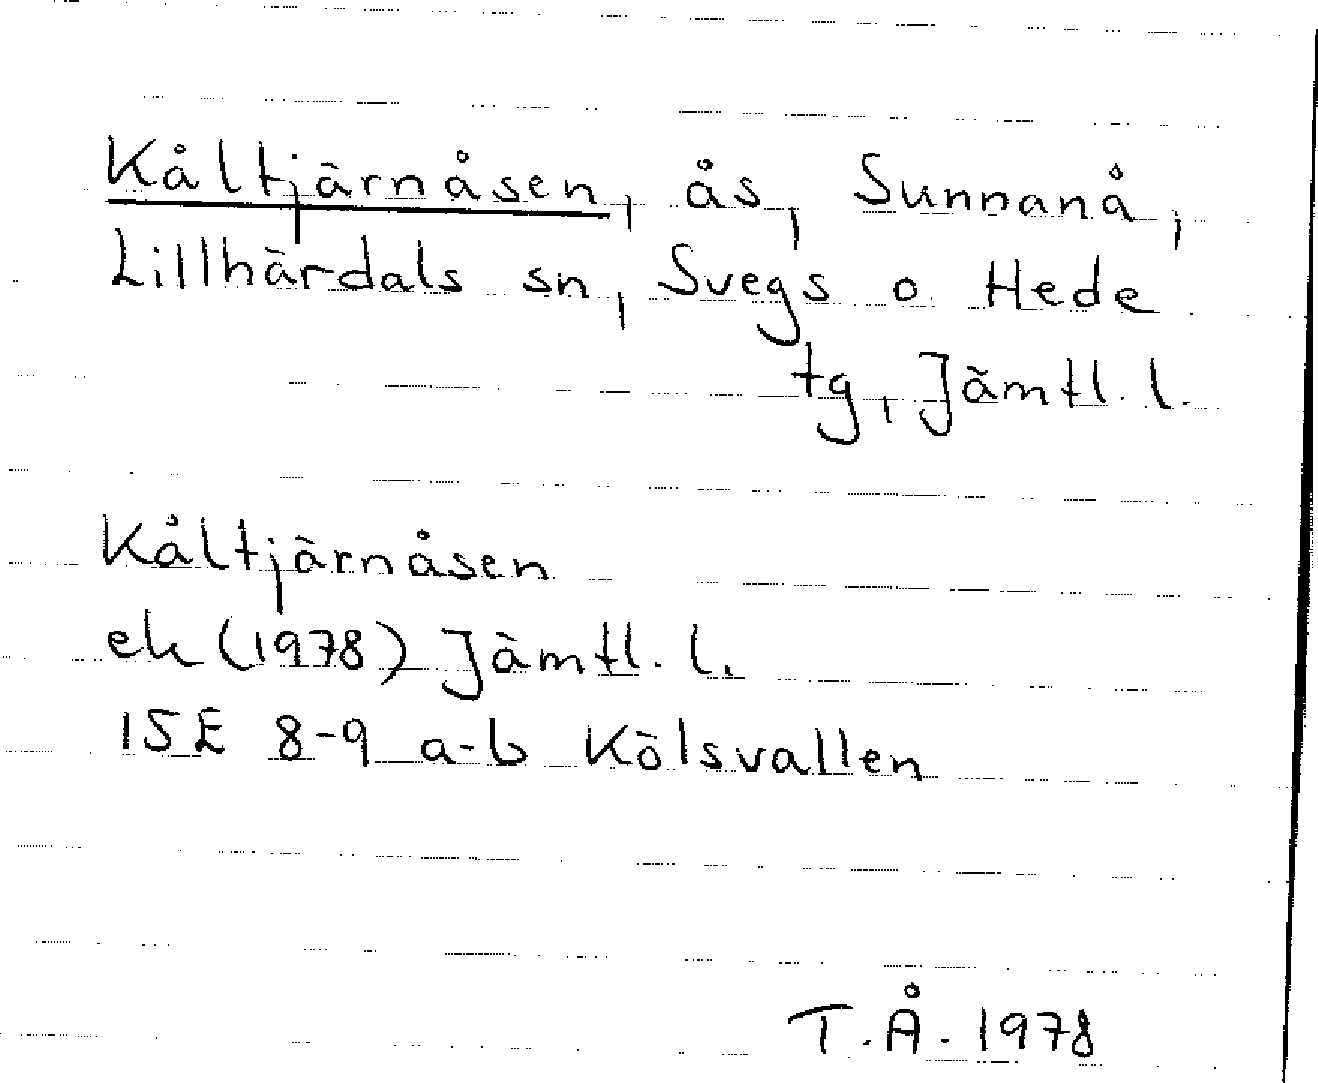 Kåltjärnåsen, ås, Sunnanå,
Lillhärdals sn, Svegs o Hede
tg, Jämtl. l.
Kåltjärnåsen
ek (1978) Jämtl. l.
15E 8-9 a-b Kölsvallen
T.Å. 1978